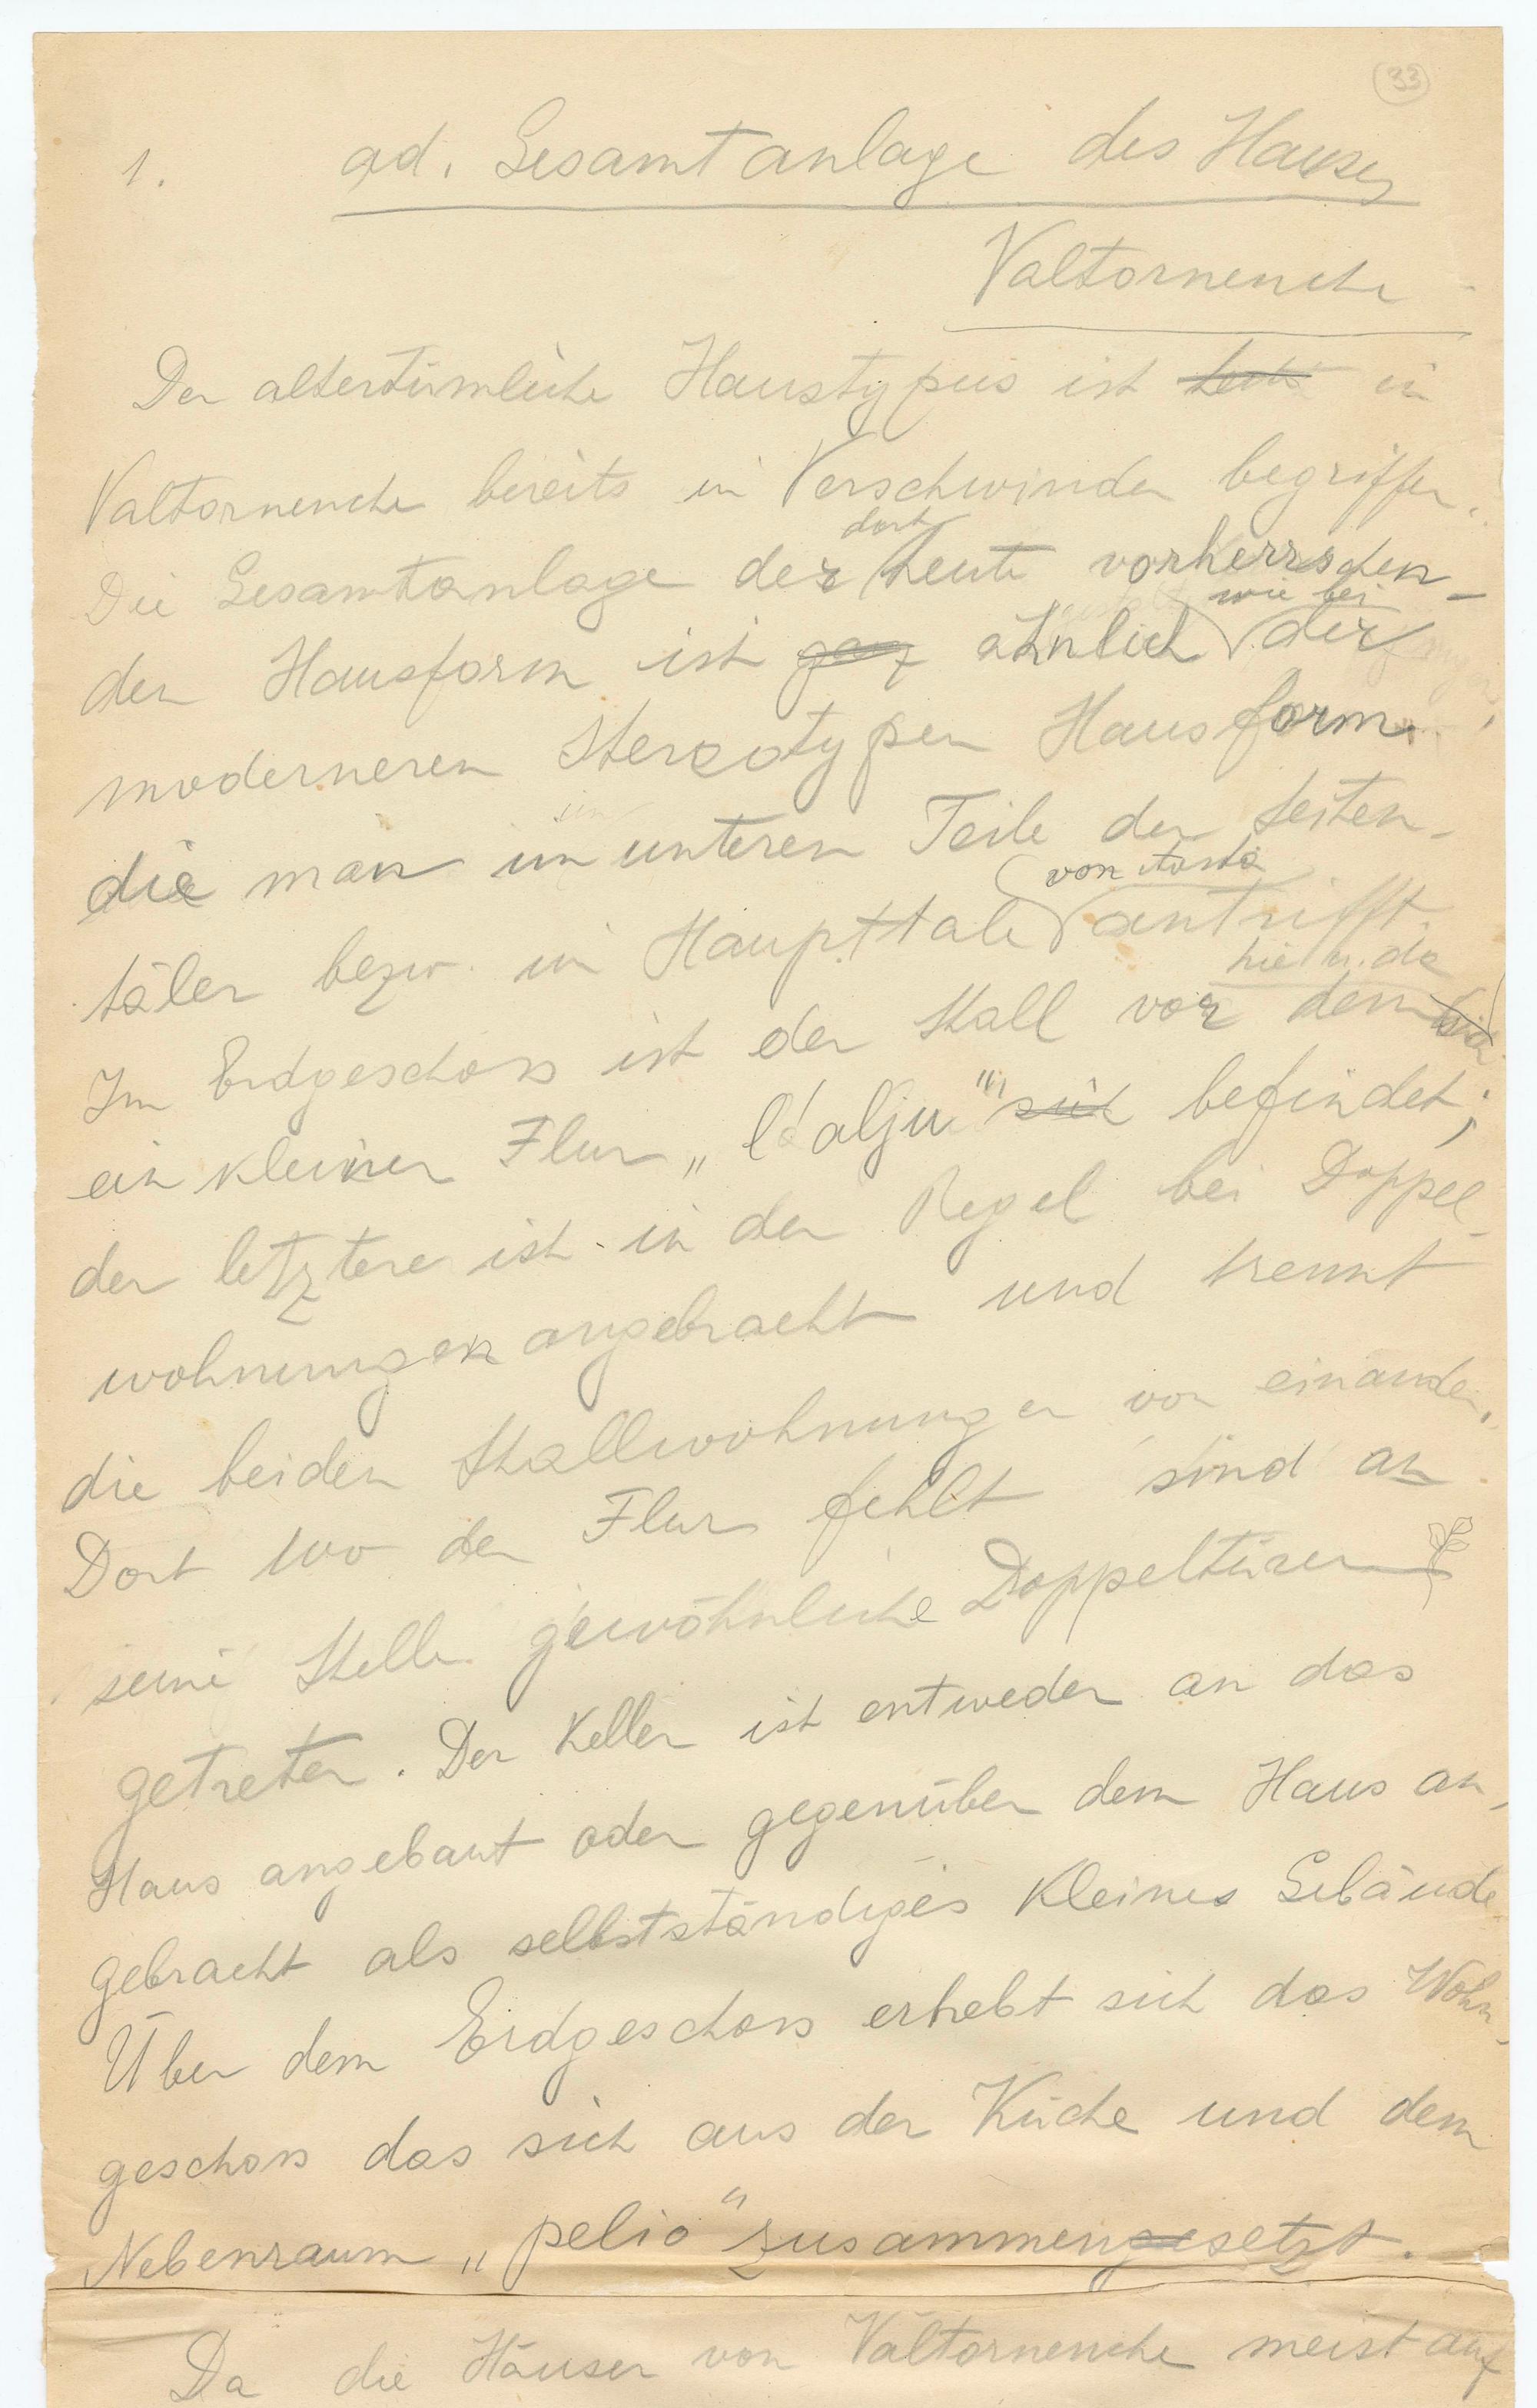 33
1. ad. Gesamtanlage des Hauses
Valtornenche
Der altertümliche Haustypus ist in
Valtornenche bereits im Verschwinden begriffen.
dort
Die Gesamtanlage der heute vorherrschen-
wie bei
den Hausform ist ganz ähnlich der
moderneren stereotypen Hausform
die man im unteren Teile der Seiten-
von Aosta
täler bezw. im Haupttale antrifft.
hie u. da
Im Erdgeschoss ist der Stall vor dem
ein kleiner Flur „l'alju" sich befindet;
der letztere ist in der Regel bei Doppel-
wohnungen angebracht und trennt
die beiden Stallwohnungen von einander.
Dort wo der Flur fehlt sind an
seine Stelle gewöhnliche Doppeltüren
getreten. Der Keller ist entweder an das
Haus angebaut oder gegenüber dem Haus an-
gebracht als selbstständiges kleines Gebäude.
Über dem Erdgeschoss erhebt sich das Wohn-
geschoss das sich aus der Küche und dem
Nebenraum „pelio" zusammengesetzt.
Da die Häuser von Valtornenche meist auf